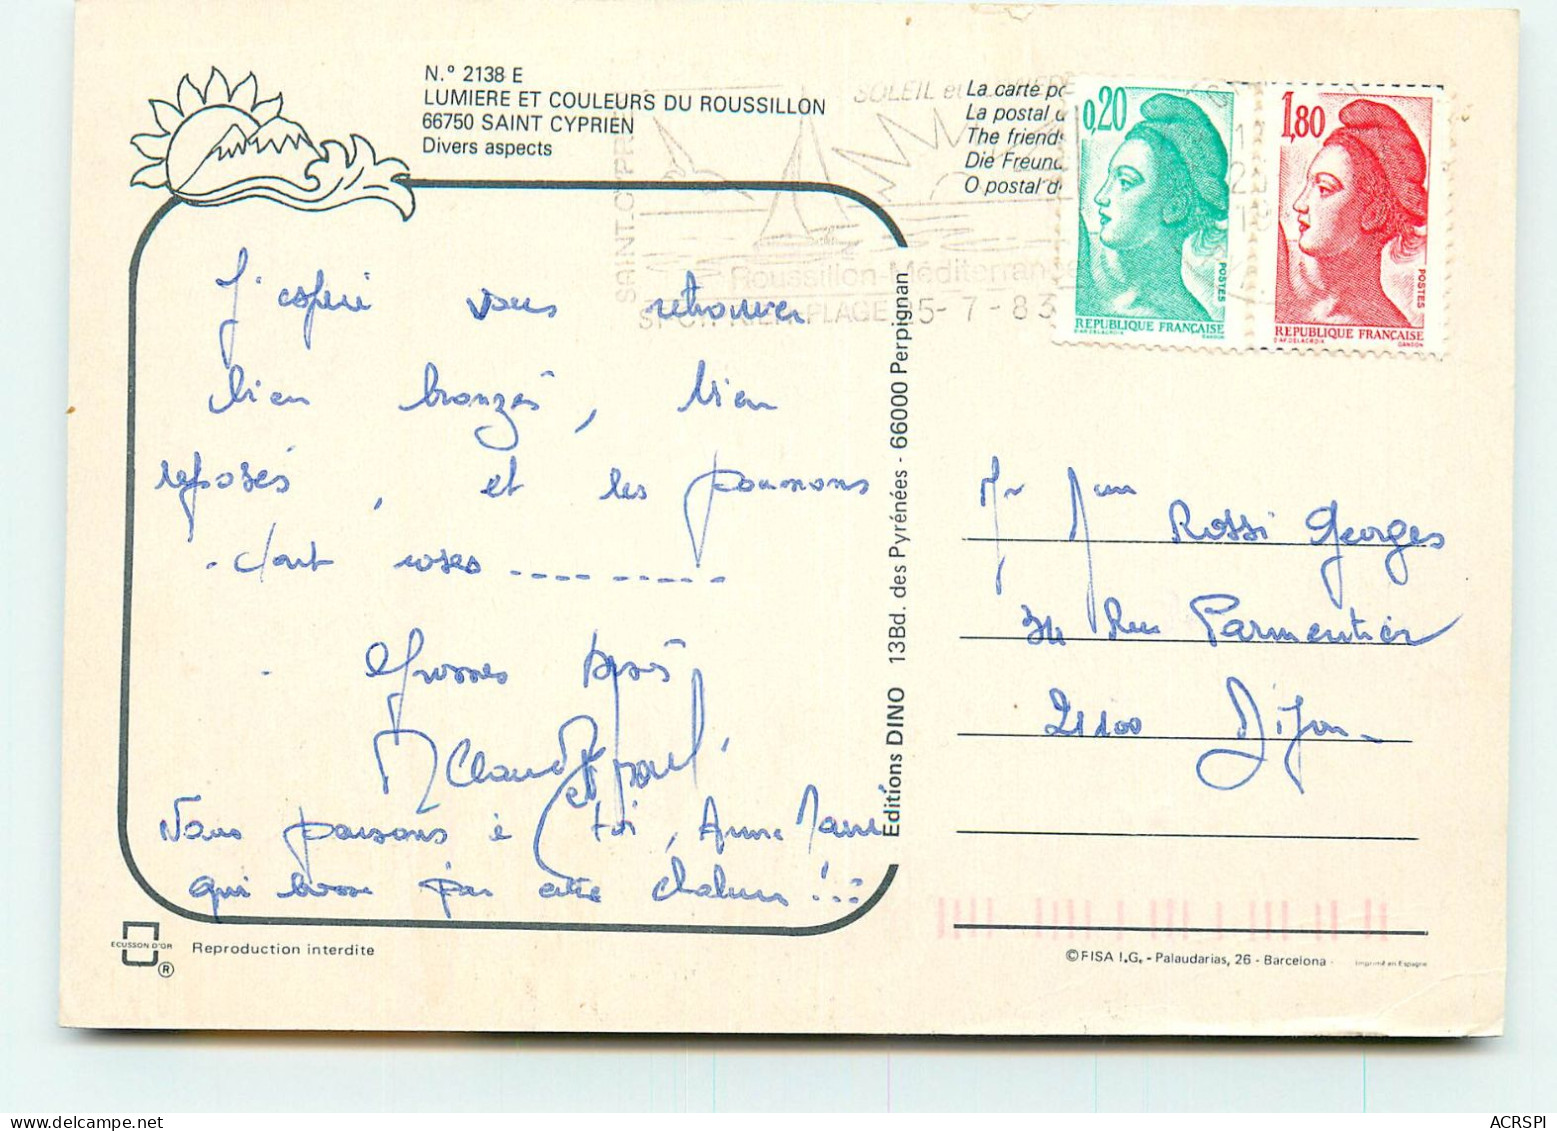 N.° 2138 E
LUMIERE ET COULEURS DU ROUSSILLON
66750 SAINT CYPRIEN
Divers aspects
SOLEIL et
La carte po
La postal d
The friends
Die Freund
O postal de
SAINT-CYPR
Roussillon-Méditerranée
PLAGE 25-7-83
0,20
POSTES
REPUBLIQUE FRANÇAISE
D'AP. DELACROIX GANDON
1,80
POSTES
REPUBLIQUE FRANÇAISE
D'AP. DELACROIX GANDON
J'espère vous retrouver
bien bronzés, bien
reposés, et les poumons
tout roses
Grosses bises
M Claude et Paul
Nous pensons à toi, Anne Marie
qui bosse par cette chaleur !..
Editions DINO 13Bd. des Pyrénées - 66000 Perpignan
Mr Mme Rossi Georges
34 Rue Parmentier
21100 Dijon
ECUSSON D'OR
®
Reproduction interdite
© FISA I.G. - Palaudarias, 26 - Barcelona - Imprimé en Espagne
ACRSPI